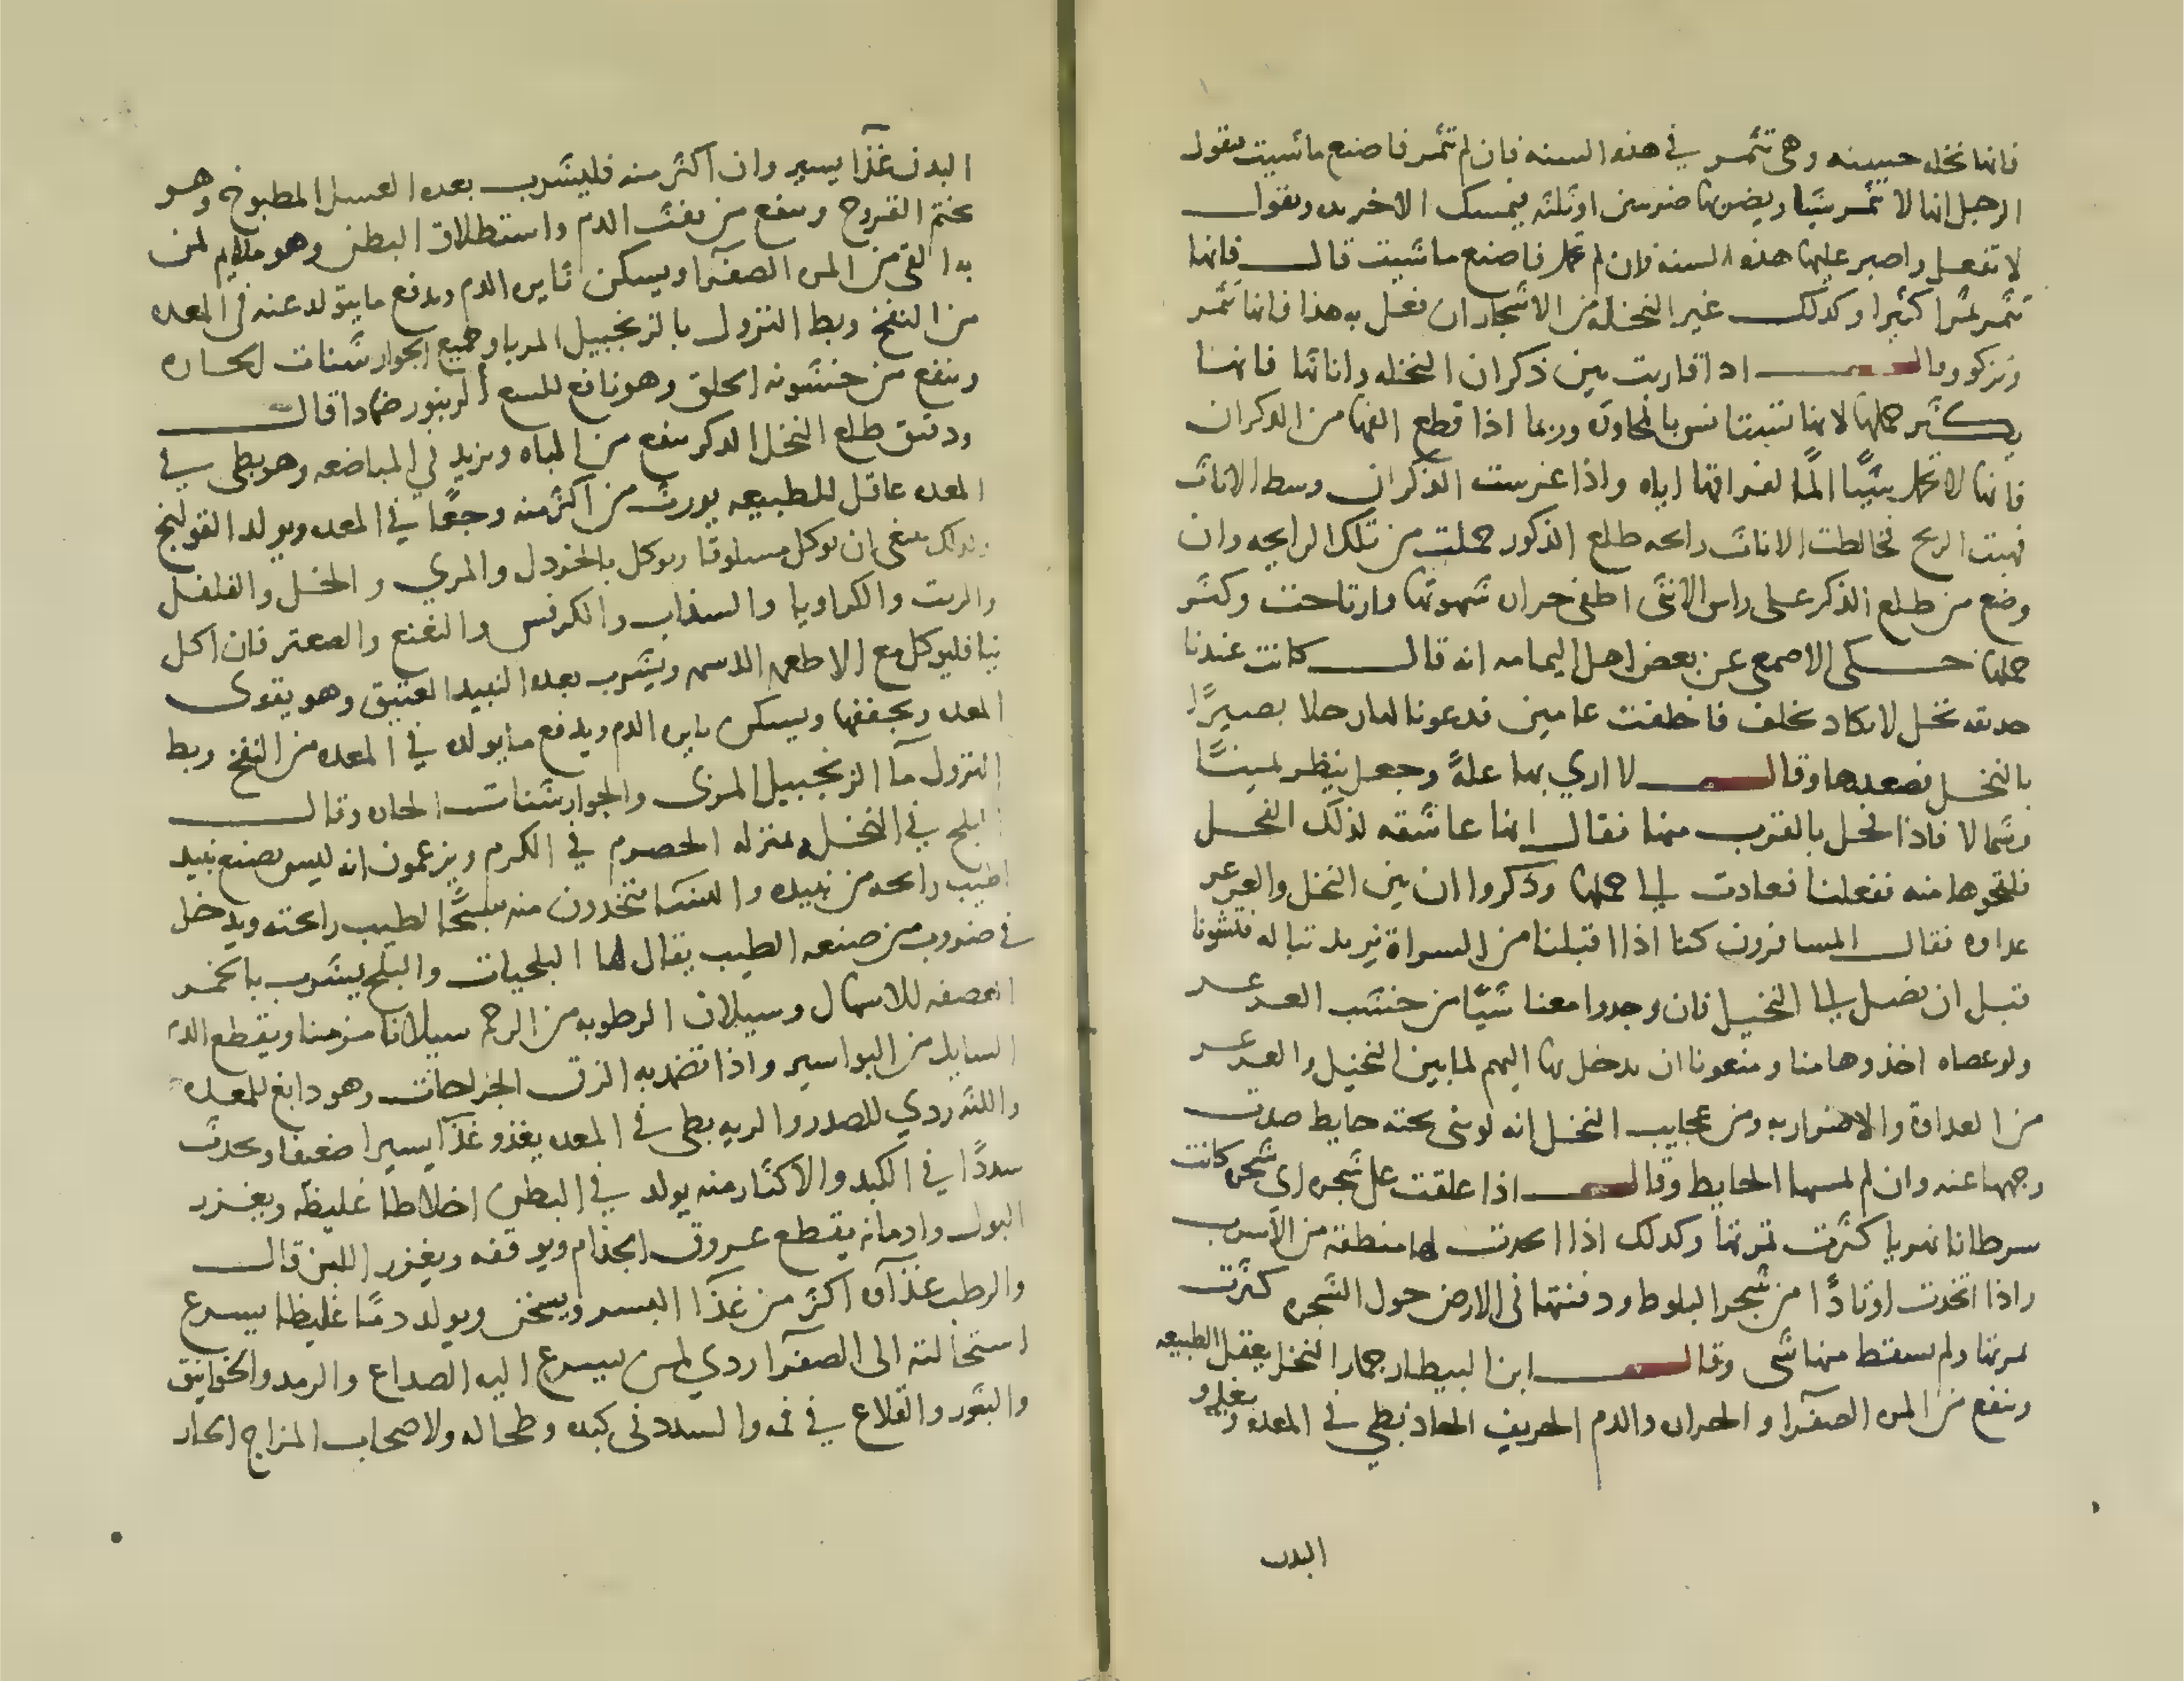 فانها نخله حسنه وهى تثمر في هذه السنه فان لم تثمر فاصنع ما شيت يقول
الرجل انها لا تثمر شيا ويضربها ضربتين او ثلثه فيمسك الاخر يده ويقول
لا تفعل واصبر عليها هذه السنه فان لم تحمل فاصنع ما شيت قال فانها
تثمر ثمرا كثيرا وكذلك غير النخله من الاشجار ان فعل به هذا فانها تثمر
وتزكو وقال اذا قاربت بين ذكران النخله واناثها فانها
يكثر حملها لانها تستانس بالمجاوره وربما اذا قطع الفها من الذكران
فانها لا تحمل شيًا المًا لفراقها اياه واذا غرست الذكران وسط الاناث
فهبت الريح فخالطت الاناث رايحه طلع الذكور حملت من تلك الرايحه وان
وضع من طلع الذكر على راس الانثى اطفى حراره شهوتها وارتاحت وكثر
حملها حكى الاصمعى عن بعض اهل اليمامه انه قال كانت عندنا
حديقه نخل لا تكاد تخلف فاخلفت عامين فدعونا لها رجلا بصيرًا
بالنخل فصعدها وقال لا اري بها علةً وجعل ينظر يمينًا
وشمالا فاذا فحل بالقرب منها فقال انها عاشقه لذلك الفحل
فلقحوها منه ففعلنا فعادت الى حملها وذكروا ان بين النخل والعرعر
عداوه فقال المسافرون كنا اذا اقبلنا من السراة نريد تباله فتشونا
قبل ان نصل الى النخيل فان وجدوا معنا شيًا من خشب العرعر
ولو عصاه اخذوها منا ومنعونا ان ندخل بها اليهم لما بين النخيل والعرعر
من العداوة والاضرار به ومن عجايب النخل انه لو بنى تحته حايط صدت
وجهها عنه وان لم يمسها الحايط وقال اذا علقت على شجره اى شجره كانت
سرطانا نهريا كثرت ثمرتها وكذلك اذا اتخذت لها منطقة من الأسرب
واذا اتخذت اوتادًا من شجر البلوط ودفنتها فى الارض حول الشجره كثرت
ثمرتها ولم يسقط منها شى وقال ابن البيطار جمار النخل يعقل الطبيعه
وينفع من المره الصفرا والحراره والدم الحريف الحاد بطى في المعده ويغذو
البدن
البدن غذآ يسير وان اكثر منه فليشرب بعده العسل المطبوخ وهو
يختم القروح وينفع من نفث الدم واستطلاق البطن وهو ملايم لمن
به القى من المره الصفرا ويسكن ثايره الدم ويدفع ما يتولد عنه فى المعده
من النفخ وبط النزول بالزنجبيل المربا وجميع الجوارشنات الحاره
وينفع من خشونه الحلق وهو نافع للسع الزنبور ضمادا قال
ودقيق طلع النخل الذكر ينفع من الباه ويزيد في المباضعه وهو بطى في
المعده عاقل للطبيعه يورث من اكثر منه وجعًا في المعده ويولد القولنج
ولذلك ينبغى ان يوكل مسلوقا ويوكل بالخردل والمري والخل والفلفل
والزيت والكراويا والسذاب والكرفس والنعنع والصعتر فان اكل
نيا فليوكل مع الاطعمه الدسمه ويشرب بعده النبيد العتيق وهو يقوى
المعده ويجففها ويسكن ثايره الدم ويدفع ما يولده في المعده من النفخ وبط
النزول مآ الزنجبيل المربى والجوارشنات الحاره وقال
البلح في النخل بمنزله الحصرم في الكرم ويزعمون انه ليس يصنع نبيد
اطيب رايحه من نبيده والنسا يتخذون منه سبحًا لطيب رايحته ويدخل
في ضروب من صنعه الطيب يقال لها البلحيات والبلح يشرب بالخمر
العصفه للاسهال وسيلان الرطوبه من الرحم سيلانا مزمنا ويقطع الدم
السايل من البواسير واذا تضمد به الزق الجراحات وهو دابغ للمعده
واللثه ردي للصدر والريه بطى في المعده يغذو غذآ يسيرا ضعيفا ويحدث
سددًا في الكبد والاكثار منه يولد في البطن اخلاطا غليظه ويغزر
البول وادمانه يقطع عروق الجذام ويوقفه ويغزر اللبن قال
والرطب غذآه اكثر من غذآ البسر ويسخن ويولد دمًا غليظا يسرع
استحالته الى الصفرآ ردي لمن يسرع اليه الصداع والرمد والخوانيق
والبثور والقلاع في فمه والسدد فى كبده وطحاله ولاصحاب المزاج الحار